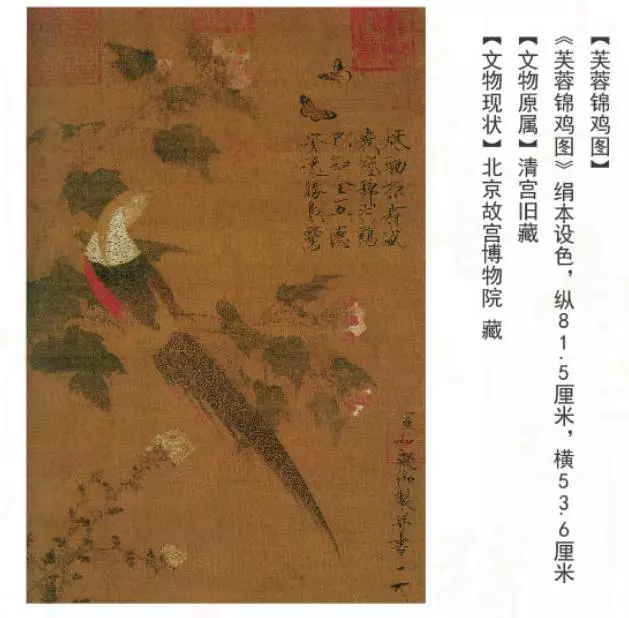 【芙蓉锦鸡图】
《芙蓉锦鸡图》绢本设色，纵81.5厘米，横53.6厘米
【文物原属】清宫旧藏
【文物现状】北京故宫博物院 藏
秋勁拒霜盛
峩冠錦羽鷄
已知全五德
安逸勝鳬鷖
宣和殿御製并書